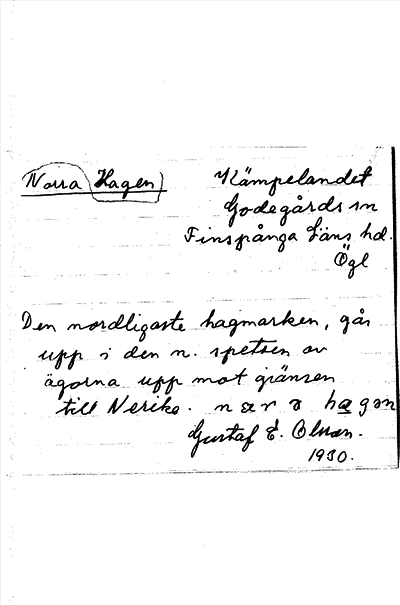 Norra Hagen
Kämpelandet
Godegårds sn
Finspånga Läns hd.
Ögl
Den nordligaste hagmarken, går
upp i den n. spetsen av
ägorna upp mot gränsen
till Nerike. n a r a hagen
Gustaf E. Olson.
1930.